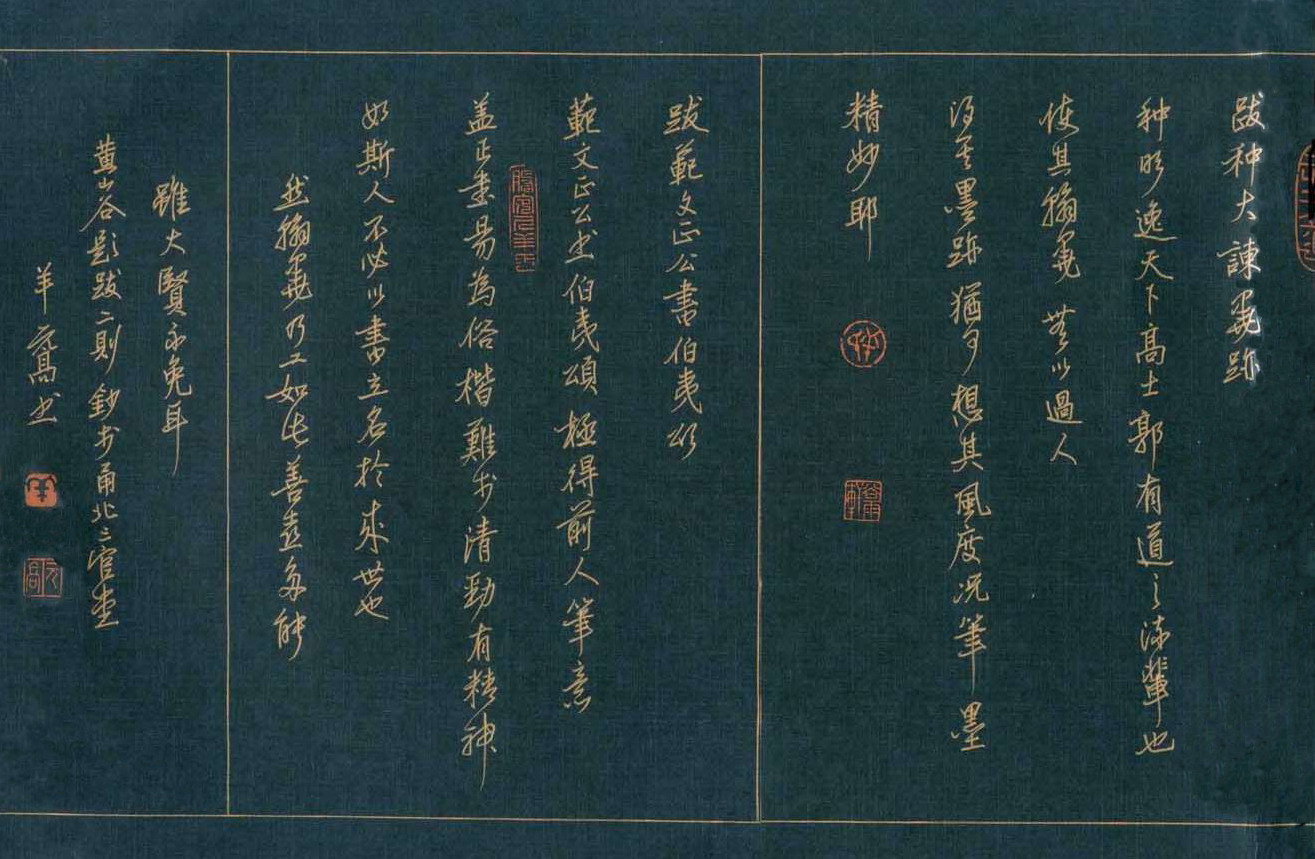 跋种大諫墨跡
种明逸天下高士郭有道之流輩也
使其翰墨無以過人
得其墨跡猶可想其風度況筆墨
精妙耶
跋範文正公書伯夷頌
範文正公書伯夷頌極得前人筆意
盖正書易為俗楷難於清勁有精神
如斯人不必以書立名於來世也
然翰墨乃工如此善喜多能
雖大賢不免耳
黃山谷題跋二則鈔於甬北三官堂
羊元高書